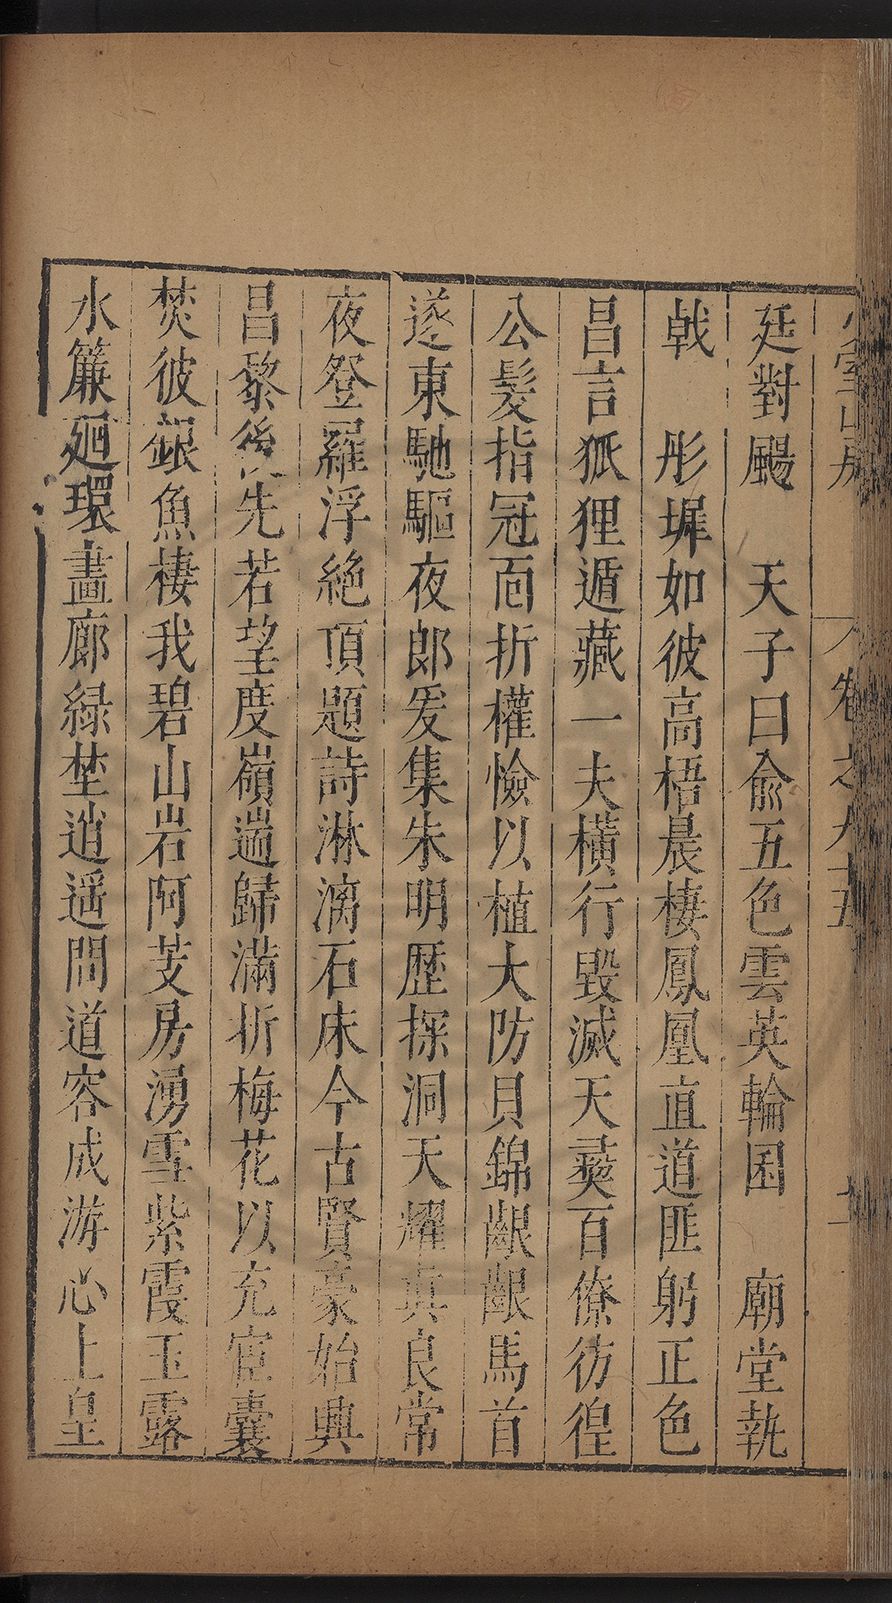 卷之九十五
廷對颺　天子曰俞五色雲英輪囷　廟堂執
戟　彤墀如彼高梧晨棲鳳凰直道匪躬正色
昌言狐狸遁藏一夫橫行毀滅天彝百僚彷徨
公髮指冠面折權憸以植大防貝錦齦齦馬首
遂東馳驅夜郎爰集朱明歴探洞天耀真良常
夜登羅浮絶頂題詩淋漓石床今古賢豪始興
昌黎後先若望度嶺遄歸滿折梅花以充宦囊
焚彼銀魚棲我碧山岩阿芝房湧雪紫霞玉露
水簾廻環畫廊緑埜逍遥問道容成游心上皇